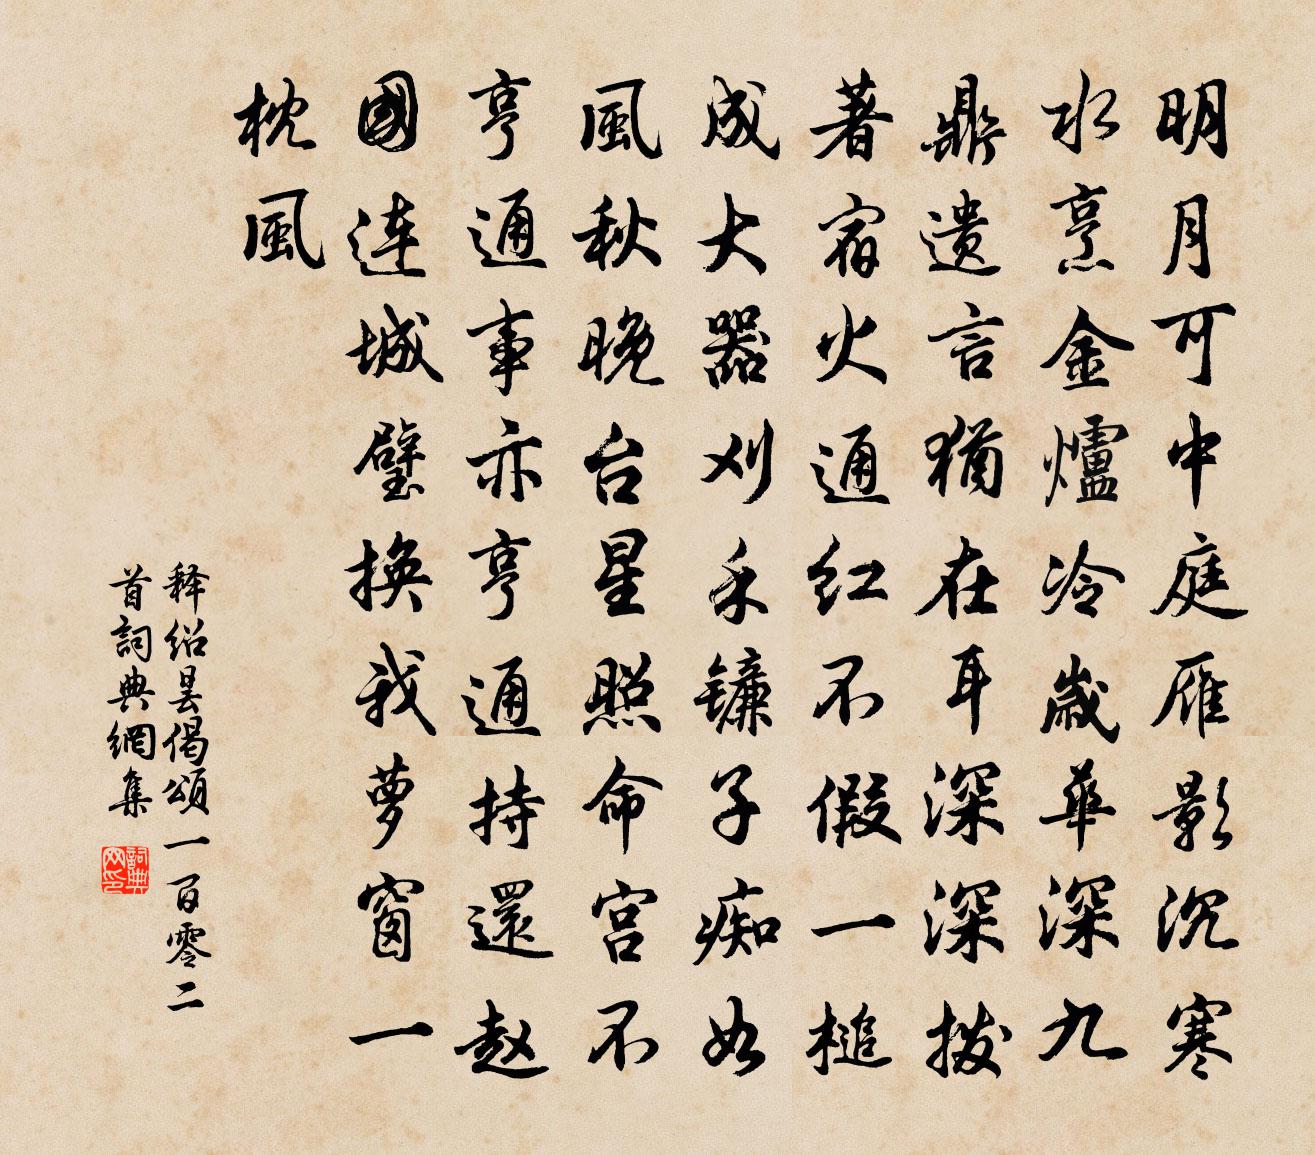 明月可中庭雁影沉寒
水烹金爐冷歲華深九
鼎遺言猶在耳深深拨
著宿火通红不假一槌
成大器刈禾镰子痴如
風秋晚台星照命宫不
亨通事亦亨通持還赵
國連城璧換我萝窗一
枕風
释绍昙偈頌一百零二
首詞典網集
詞典网印